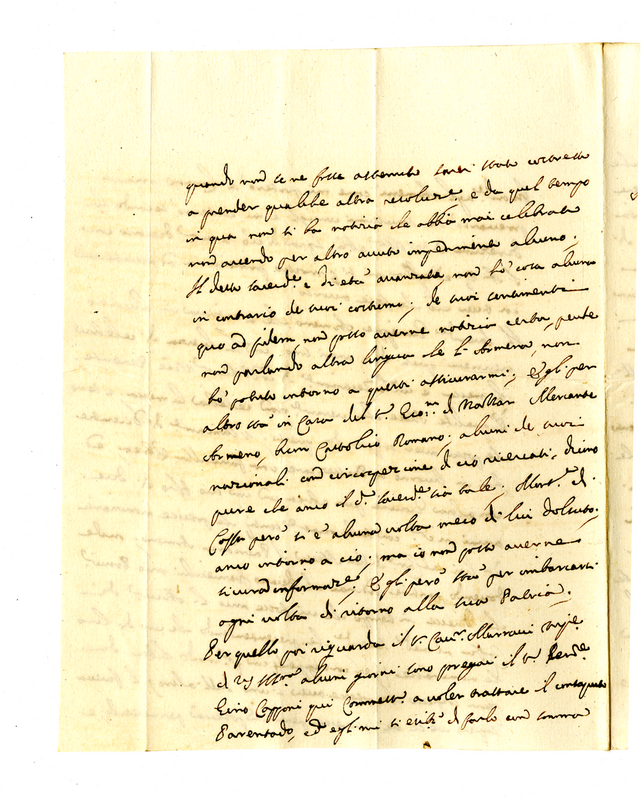 quando non se ne fosse astenuto sarei stato costretto
a prender qualche altra resoluze, e da quel tempo
in qua non si ha notizia che abbia mai celebrato
non avendo per altro avuto impedimento alcuno.
Il detto Sacerde è di età avanzata, non ho cosa alcuna
in contrario de suoi costumi; de suoi sentimenti
quo ad fidem, non posso averne notizia certa, perche
non parlando altra lingua che l'Armena, non
ho potuto intorno a questi assicurarmi; Egli per
altro stà in Casa del Sr di Mercante
Armeno, buon Cattolico Romano; alcuni de suoi
nazionali con circospezione di ciò ricercati, dicono
pure che anco il do Sacerde sia tale. Monsre di
però si è alcuna volta meco di lui doluto
anco intorno a ciò; ma io non posso averne
sicura informaze; Egli però stà per imbarcarsi
ogni volta di ritorno alla sua Patria.
Per quello poi riguarda il Sr Cavre
alcuni giorni sono pregai il Sr
Capponi qui a voler trattare il
Parentado, ed egli mi si esibì di farlo con somma